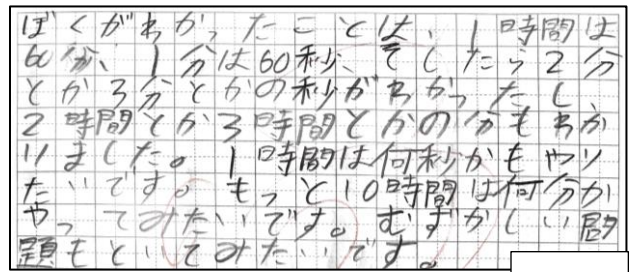 ぼくがわかったことは、1時間は
60分、1分は60秒、そしたら2分
とか3分とかの秒がわかったし、
2時間とか3時間とかの分もわか
りました。1時間は何秒かもやり
たいです。もっと10時間は何分か
やってみたいです。むずかしい問
題もといてみたいです。